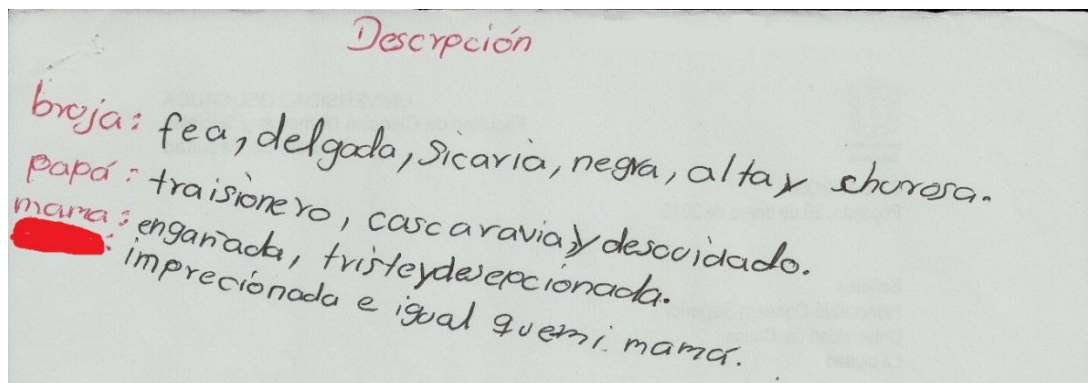 Descrpción
broja: fea, delgada, sicaria, negra, alta y churosa.
papá: traisionero, cascaravia, y descuidado.
mama: engañada, triste y desepcionada.
: imprecionada e igual que mi mamá.